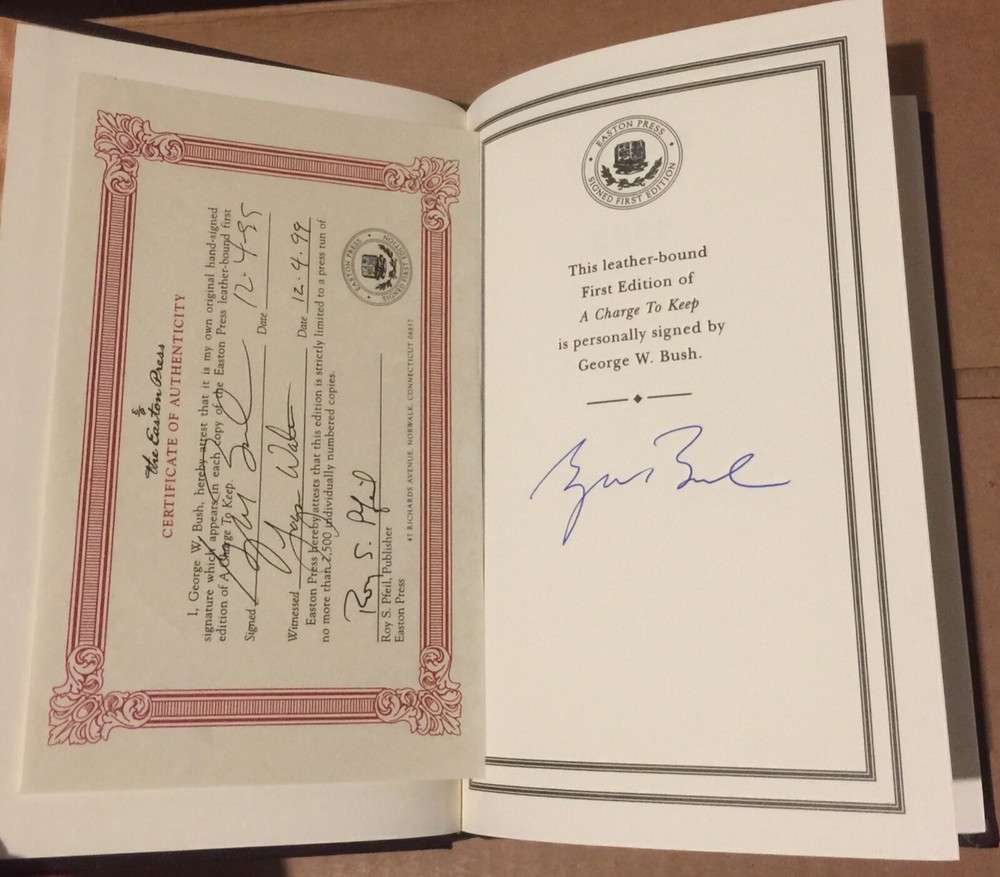 the Easton Press
CERTIFICATE OF AUTHENTICITY
I, George W. Bush, hereby attest that it is my own original hand-signed
signature which appears in each copy of the Easton Press leather-bound first
edition of A Charge To Keep.
Signed Date 12-4-95
Witnessed Date 12.4.99
Easton Press hereby attests that this edition is strictly limited to a press run of
no more than 2,500 individually numbered copies.
Roy S. Pfeil
Roy S. Pfeil, Publisher
Easton Press
EASTON PRESS
SIGNED FIRST EDITION
47 RICHARDS AVENUE, NORWALK, CONNECTICUT 06857
EASTON PRESS
SIGNED FIRST EDITION
This leather-bound
First Edition of
A Charge To Keep
is personally signed by
George W. Bush.